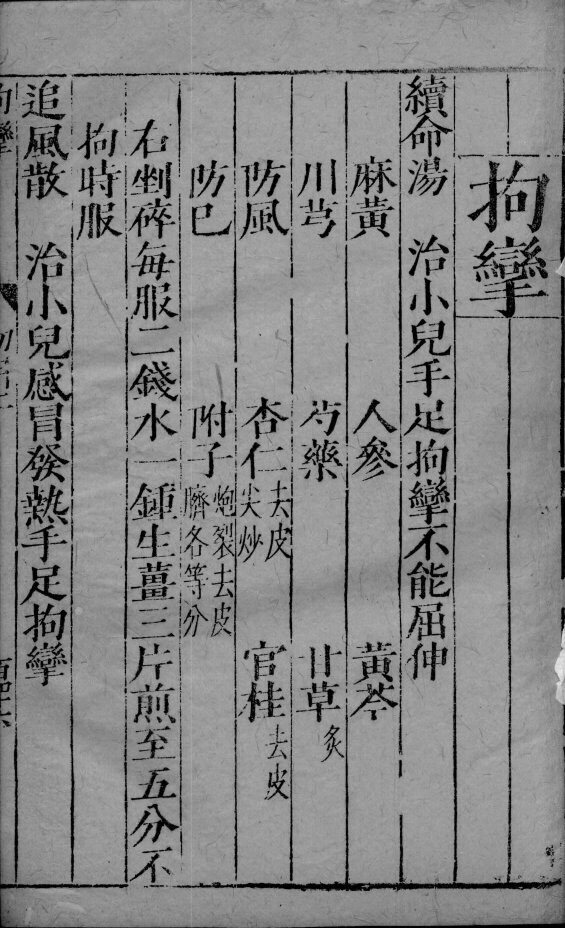 拘攣
續命湯　治小兒手足拘攣不能屈伸
麻黃　人參　黃芩
川芎　芍藥　甘草炙
防風　杏仁去皮尖炒　官桂去皮
防巳　附子炮裂去皮臍各等分
右剉碎每服二錢水一鍾生薑三片煎至五分不
拘時服
追風散　治小兒感冒發熱手足拘攣
拘攣